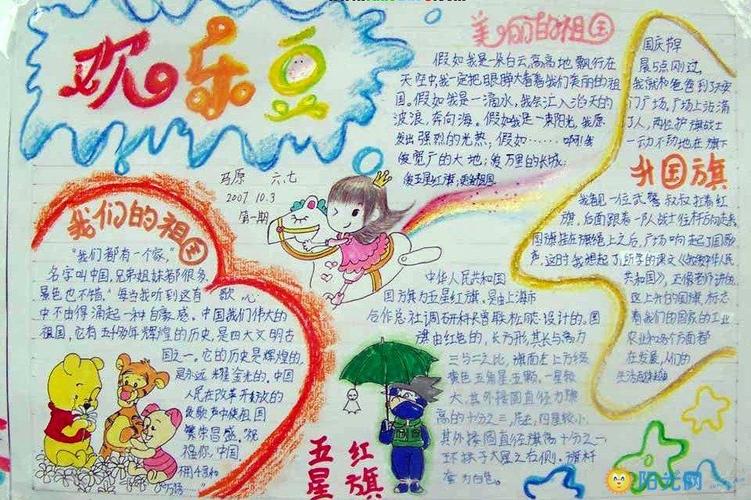 欢乐豆
马原 六、七
2007.10.3
第一期
美丽的祖国
假如我是一朵白云,高高地飘行在
天空中,我一定把眼睁大看看我们美丽的祖
国。假如我是一滴水,我会汇入滔天的
波浪,奔向海。假如我是一束阳光,我原
发出强烈的光热,假如……啊!我
爱宽广的大地;爱万里的长城;
爱五星红旗;爱祖国
国庆节早
晨5点刚过,
我就和爸爸到天安
门广场,广场上站满
了人,两位护旗战士
一动不动地在旗下
升国旗
我看见一位武警叔叔扛着红
旗,后面跟着一队战士
国旗挂在旗绳上之后,广场响起了国歌
声,这时我想起了所学的课文《我爱中华人民
共和国》,正像老师讲的
这上升的国旗标志
着我们的国家的工业
农业和各个方面都
在发展,人们的
我们的祖国
“我们都有一个家,
名字叫中国,兄弟姐妹都很多,
景色也不错。”每当我听到这首歌,心
中不由得涌起一种自豪感。中国我们伟大的
祖国,它有五千多年辉煌的历史,是四大文明古
国之一,它的历史是辉煌的,
是永远耀金光的。中国
人民在改革开放的
祖国
繁荣昌盛。“祝
福你,中国
中华人民共和国
国旗为五星红旗,是由上海市
合作总社调研科长曾联松设计的。国
旗由红色的,长方形,其长与高为
三与二之比,旗面左上方缀
黄色五角星五颗,一星较
大,其外接圆直径为旗
高的十分之三,居左,四星较小,
其外接圆直径旗高十分之一
环拱于大星之右侧,旗杆
套为白色。
五星红旗
阳光网